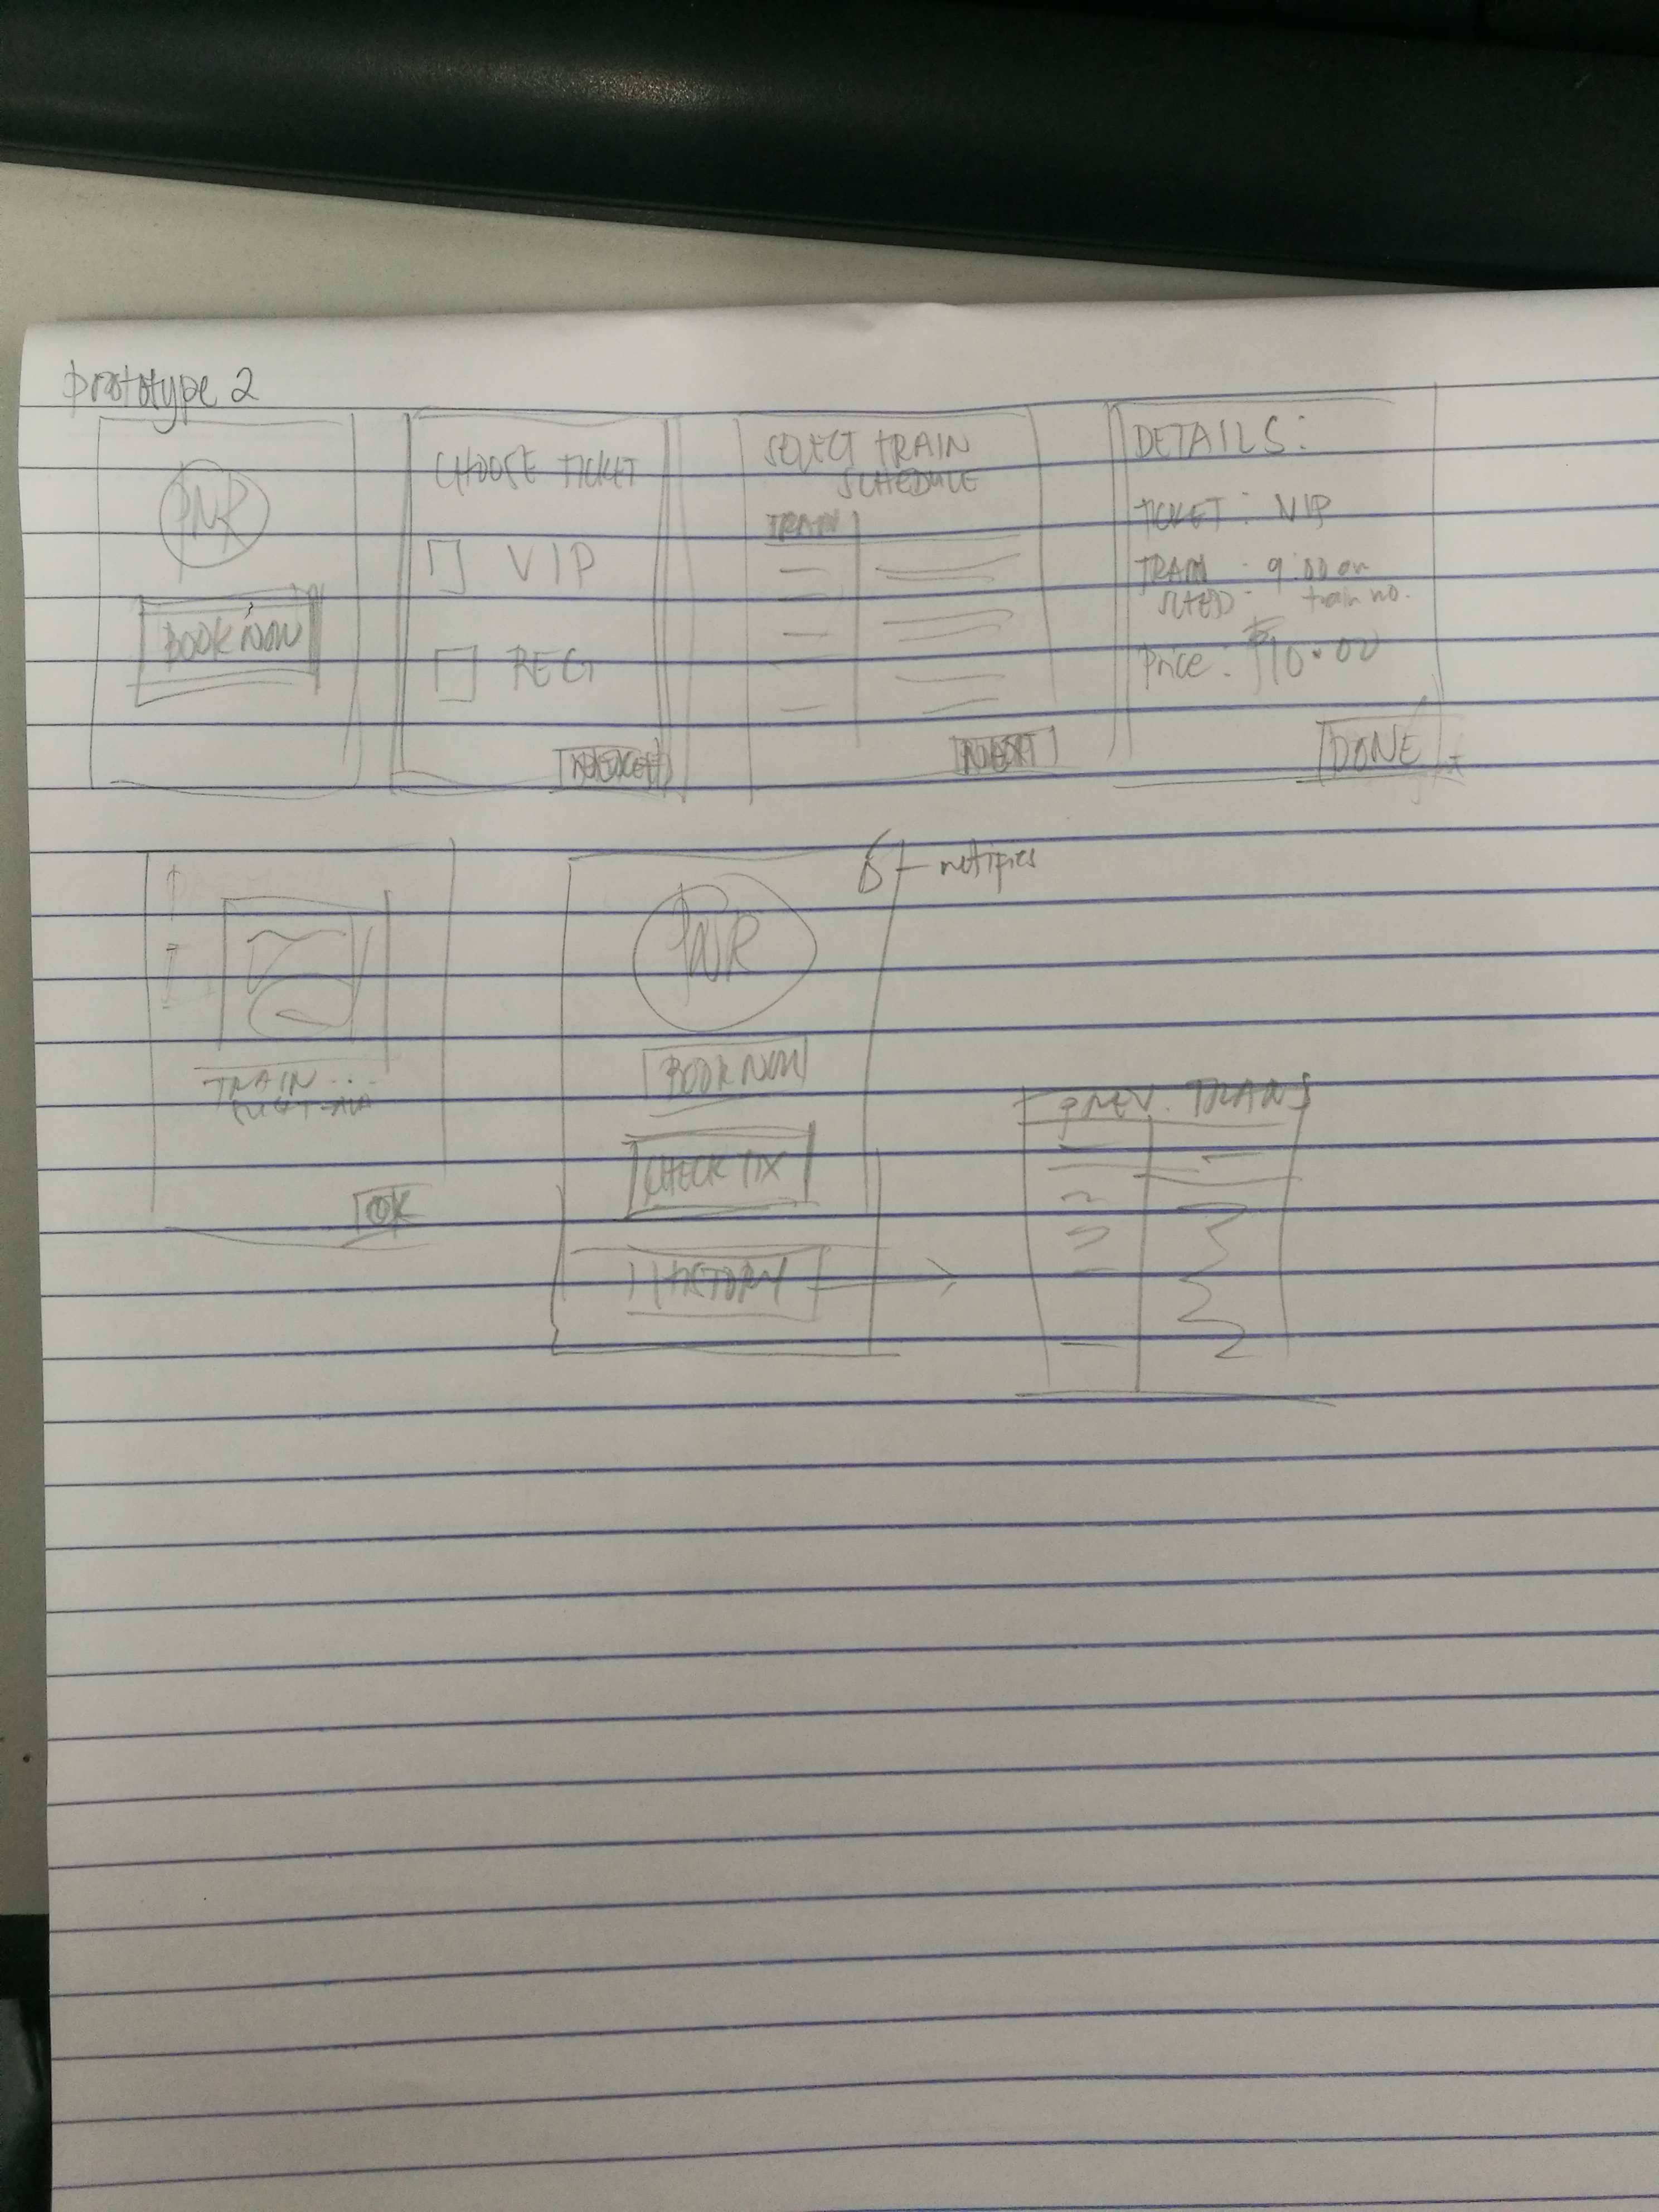 prototype 2
PNR
BOOK NOW
CHOOSE TICKET
VIP
REG
NEXT
SELECT TRAIN
SCHEDULE
TRAIN
NEXT
DETAILS:
TICKET: VIP
TRAIN : 9:00 am
SCHED train no.
Price: ₱10.00
DONE
TRAIN ...
OK
notifies
PNR
BOOK NOW
CHECK TIX
HISTORY
PREV. TRANS